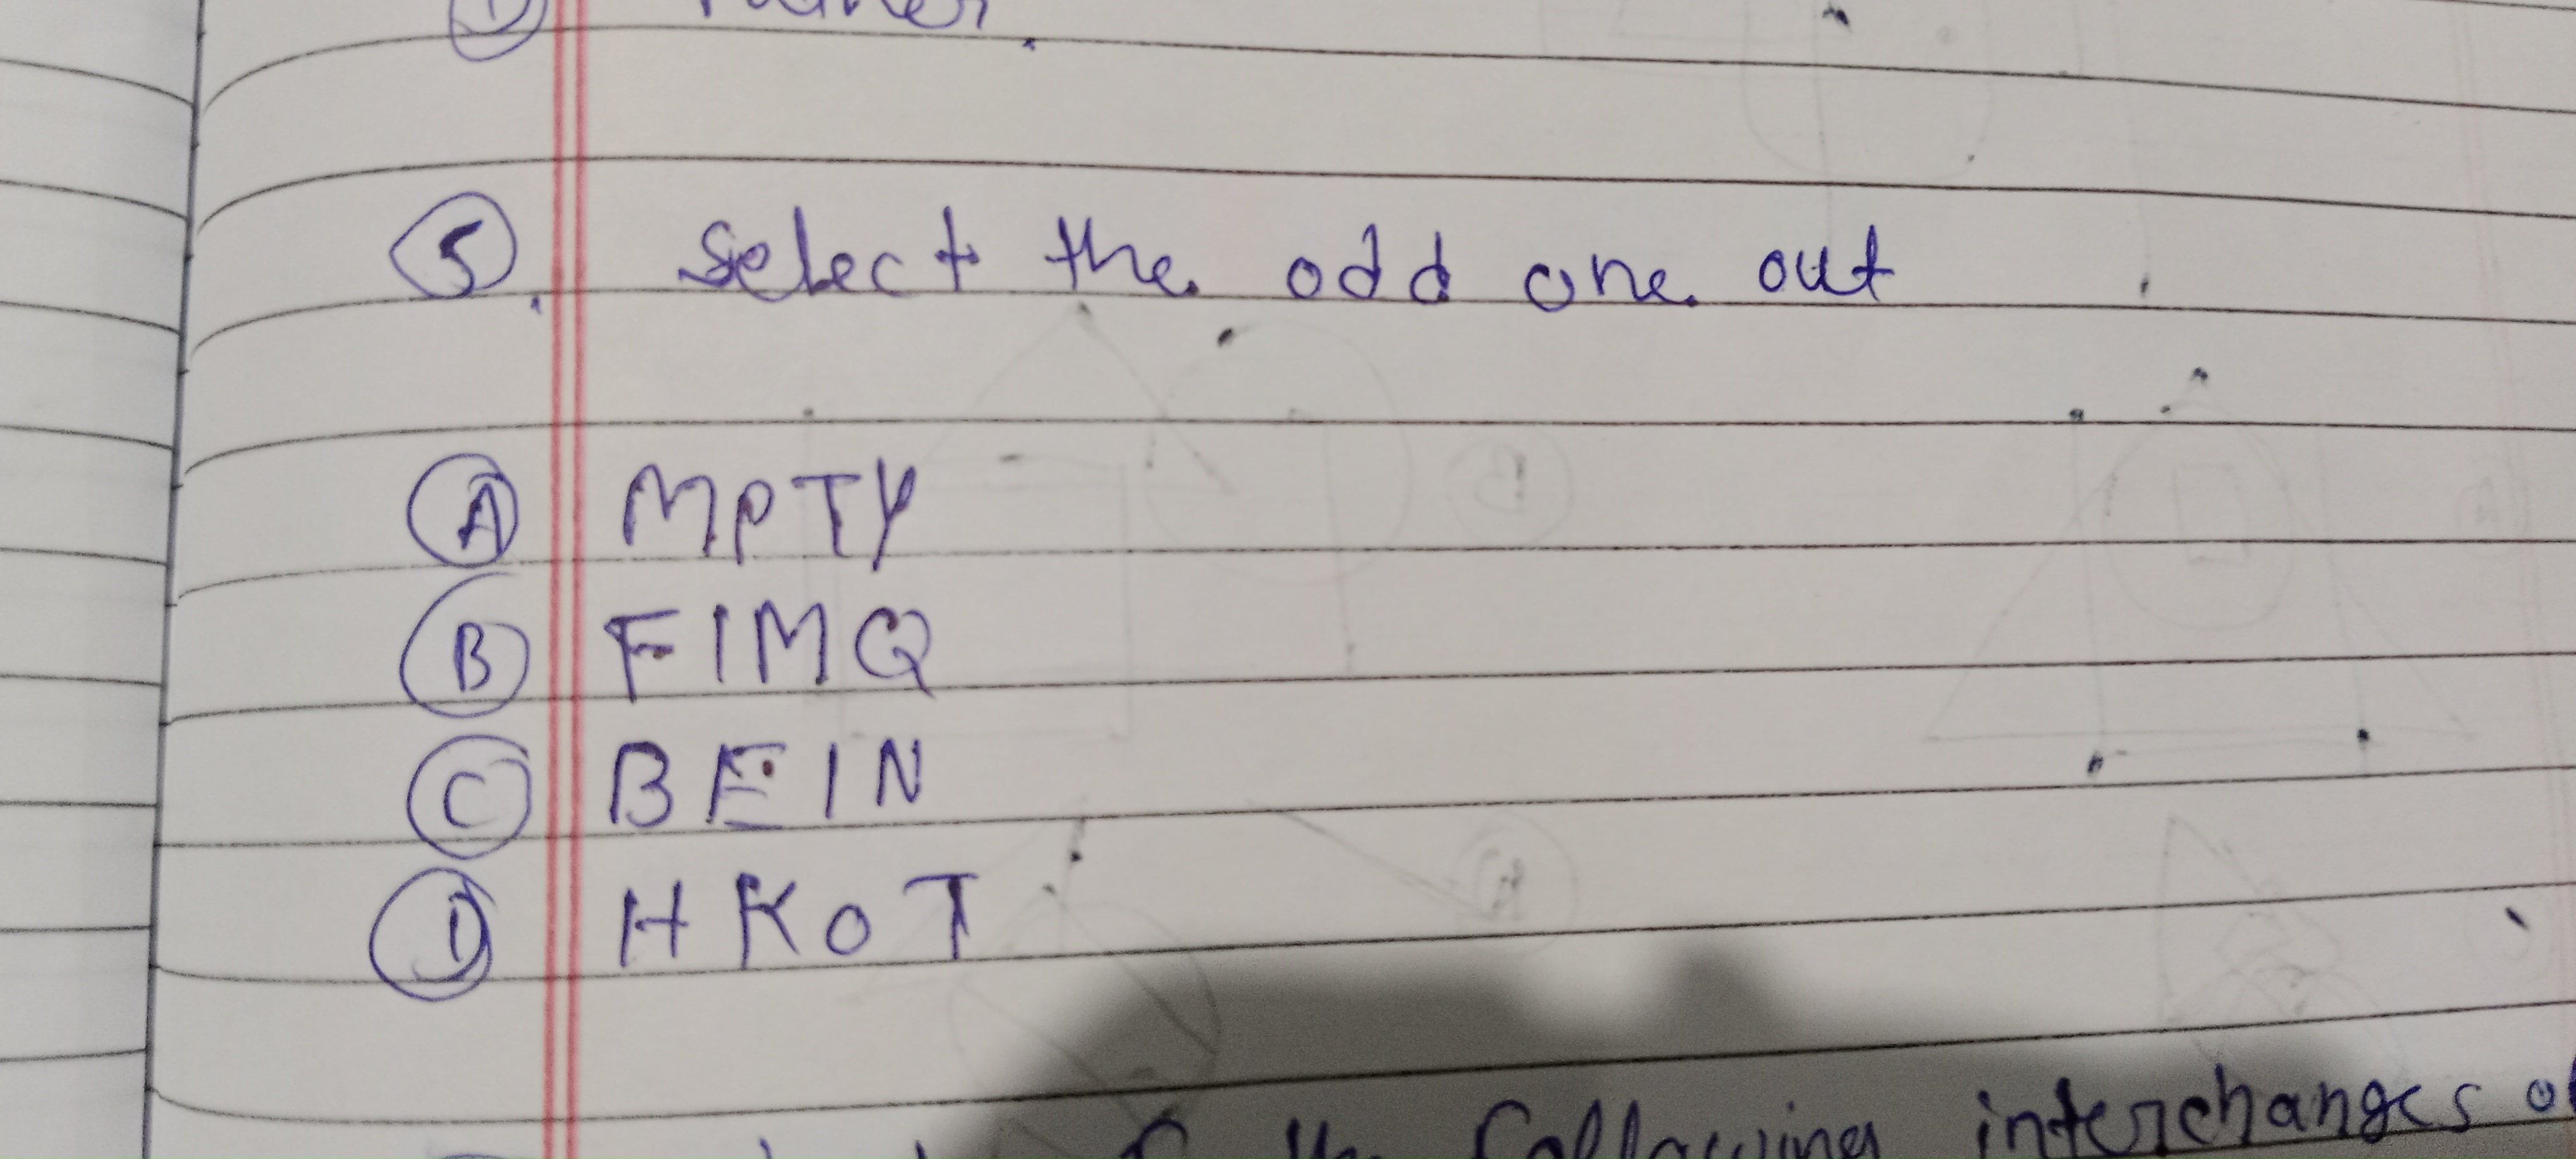 5. Select the odd one out
A MPTY
B FIMQ
C BEIN
D HKOT
the following interchanges